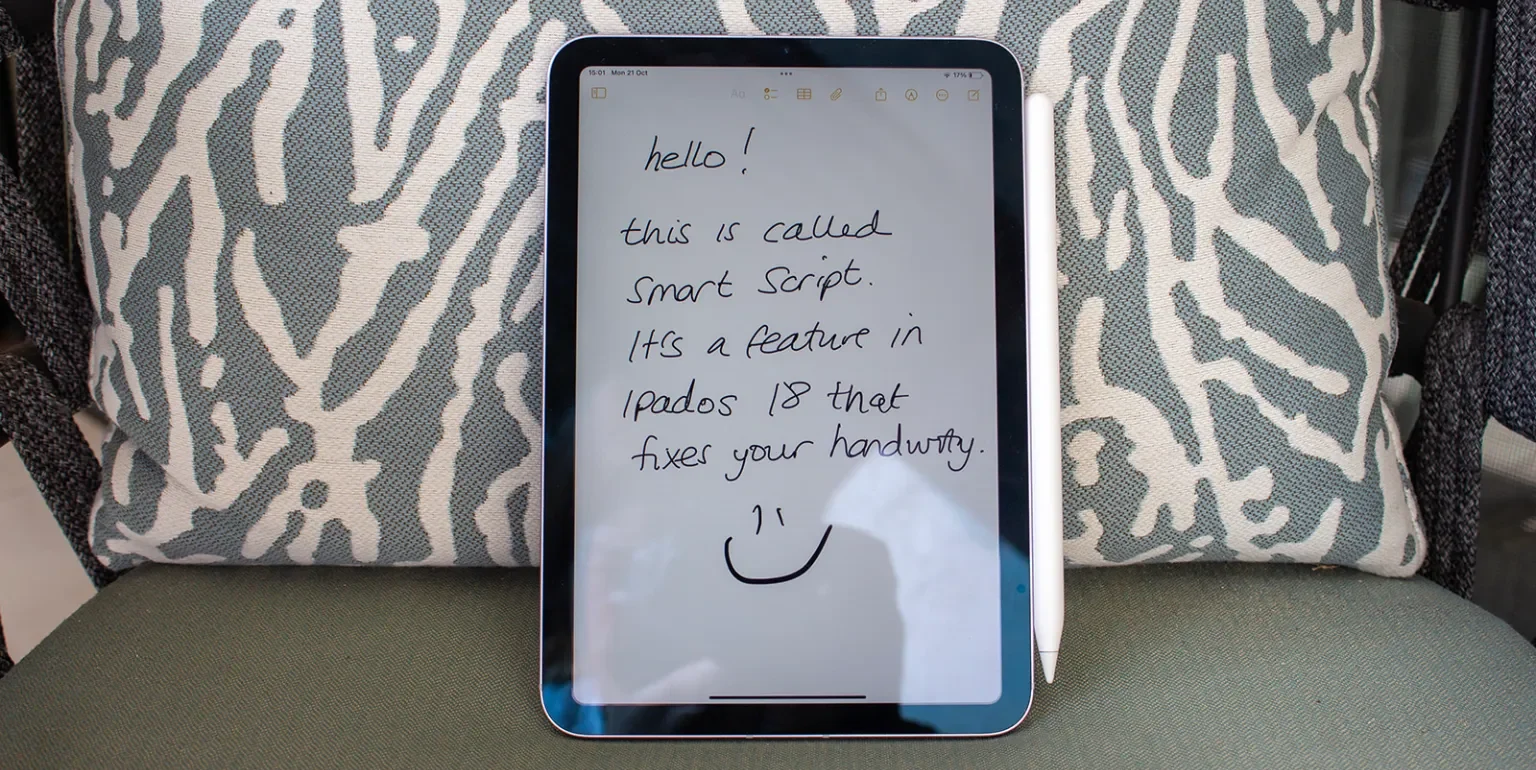 15:01 Mon 21 Oct 17%
Aa
hello!
this is called
Smart Script.
It's a feature in
Ipados 18 that
fixes your handwrity.